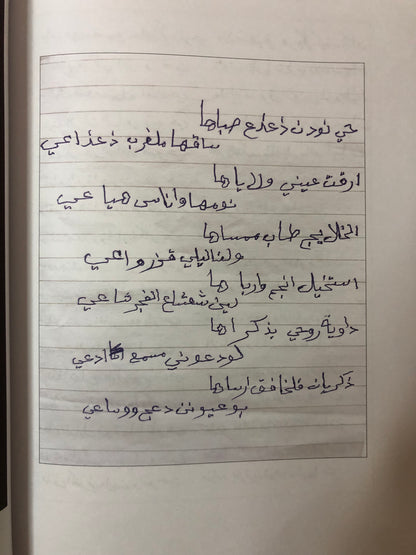 حي نودن ذعذع صباها
ساقها ملغرب ذعذاعي
ارقت عيني ولاياها
نومها واناسي هياعي
الخلا يج طاب ممساها
ولنا ليلي قزر واعي
استخيل النجم وارباها
لين شعشاع الفجر شاعي
داوية روحي بذكراها
كودعوني مسمع ادعي
ذكريات فلخافق ارساها
بو عيونن دعج ووساعي